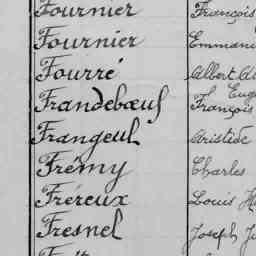 Fournier François
Fournier Emman
Fourré Albert
Frandebœuf Eug François
Frangeul Aristide
Frémy Charles
Fréreux Louis
Fresnel Joseph